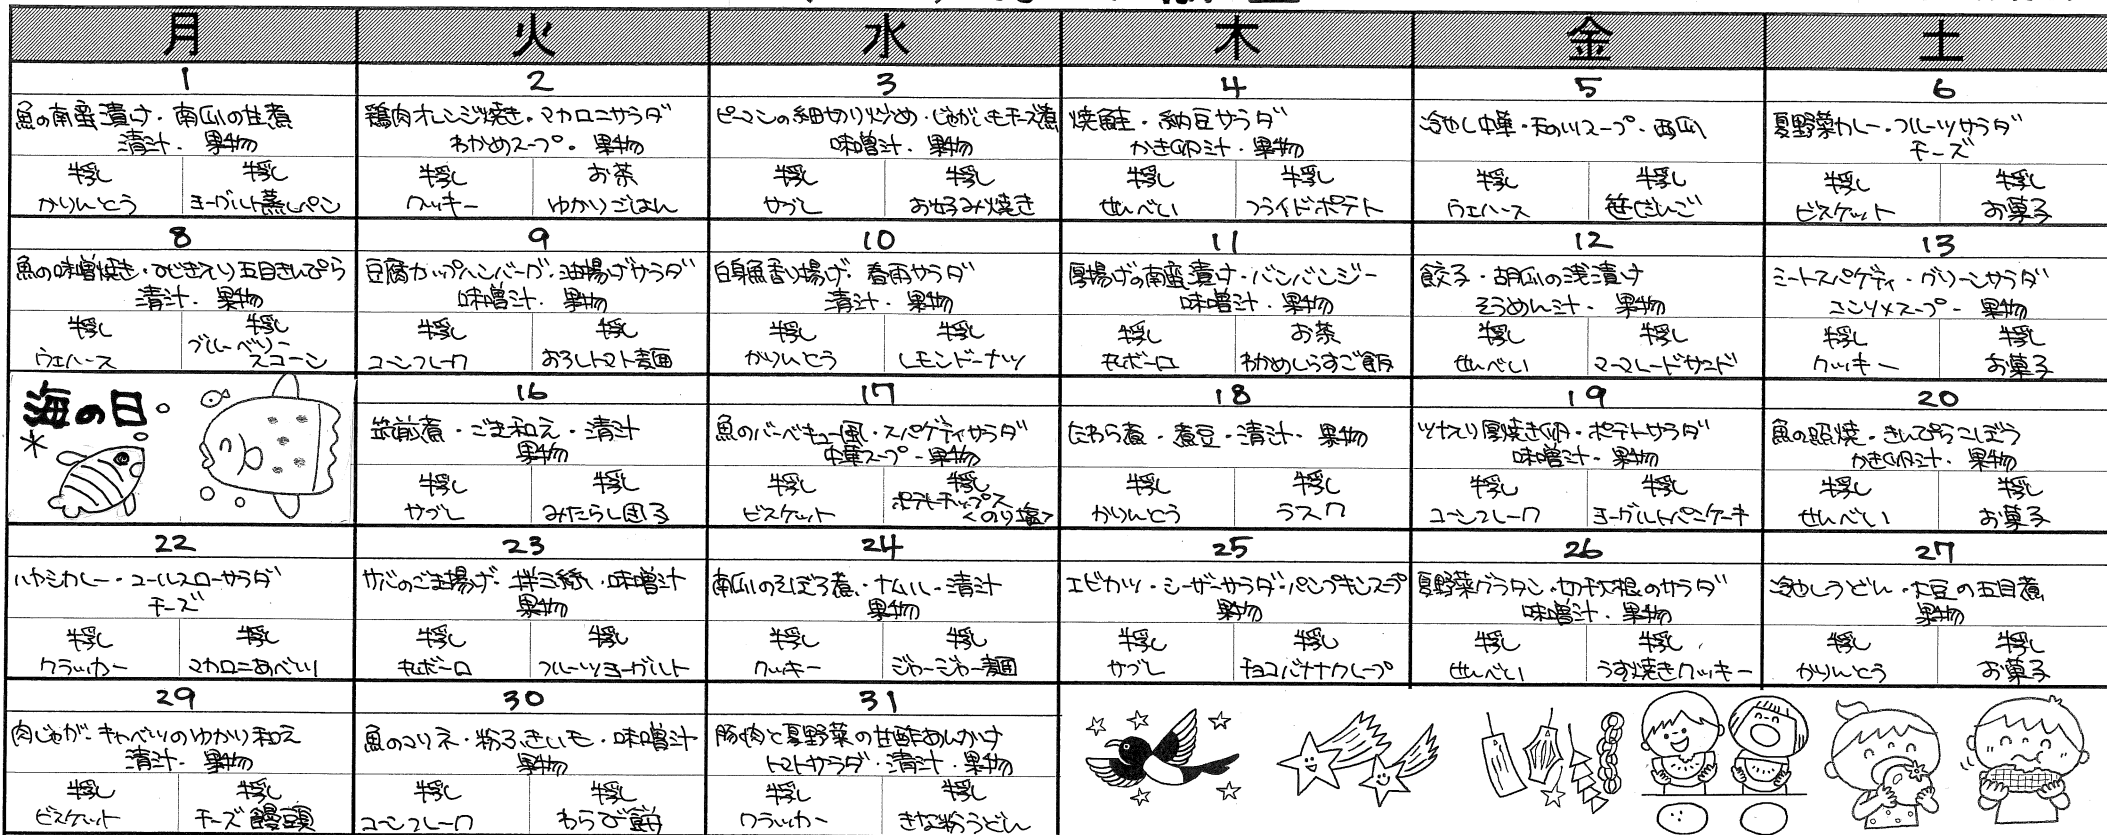 月 火 水 木 金 土
1
魚の南蛮漬け・南瓜の甘煮
清汁・果物
牛乳 牛乳
かりんとう ヨーグルト蒸しパン
2
鶏肉オレンジ焼き・マカロニサラダ
わかめスープ・果物
牛乳 お茶
クッキー ゆかりごはん
3
ピーマンの細切り炒め・じゃがいもチーズ煮
味噌汁・果物
牛乳 牛乳
サブレ お好み焼き
4
焼鮭・納豆サラダ
かき卵汁・果物
牛乳 牛乳
せんべい フライドポテト
5
冷やし中華・天の川スープ・西瓜
牛乳 牛乳
ウェハース 笹だんご
6
夏野菜カレー・フルーツサラダ
チーズ
牛乳 牛乳
ビスケット お菓子
8
魚の味噌焼き・ひじき入り五目きんぴら
清汁・果物
牛乳 牛乳
ウェハース ブルーベリー
スコーン
9
豆腐カップハンバーグ・油揚げサラダ
味噌汁・果物
牛乳 牛乳
コーンフレーク おろしトマト素麺
10
白身魚香り揚げ・春雨サラダ
清汁・果物
牛乳 牛乳
かりんとう レモンドーナツ
11
厚揚げの南蛮漬け・バンバンジー
味噌汁・果物
牛乳 お茶
丸ボーロ わかめしらすご飯
12
餃子・胡瓜の浅漬け
そうめん汁・果物
牛乳 牛乳
せんべい マーマレードサンド
13
ミートスパゲティ・グリーンサラダ
コンソメスープ・果物
牛乳 牛乳
クッキー お菓子
海の日
16
筑前煮・ごま和え・清汁
果物
牛乳 牛乳
サブレ みたらし団子
17
魚のバーベキュー風・スパゲティサラダ
中華スープ・果物
牛乳 牛乳
ビスケット ポテトチップス
<のり塩>
18
たわら煮・煮豆・清汁・果物
牛乳 牛乳
かりんとう ラスク
19
ツナ入り厚焼き卵・ポテトサラダ
味噌汁・果物
牛乳 牛乳
コーンフレーク ヨーグルトパンケーキ
20
魚の照焼・きんぴらごぼう
かき卵汁・果物
牛乳 牛乳
せんべい お菓子
22
ハヤシカレー・コールスローサラダ
チーズ
牛乳 牛乳
クラッカー マカロニあべかわ
23
サバのごま揚げ・拌三絲・味噌汁
果物
牛乳 牛乳
丸ボーロ フルーツヨーグルト
24
南瓜のそぼろ煮・ナムル・清汁
果物
牛乳 牛乳
クッキー ジャージャー麺
25
エビカツ・シーザーサラダ・パンプキンスープ
果物
牛乳 牛乳
サブレ チョコバナナクレープ
26
夏野菜グラタン・切干大根のサラダ
味噌汁・果物
牛乳 牛乳
せんべい うす焼きクッキー
27
冷やしうどん・大豆の五目煮
果物
牛乳 牛乳
かりんとう お菓子
29
肉じゃが・キャベツのゆかり和え
清汁・果物
牛乳 牛乳
ビスケット チーズ饅頭
30
魚のマリネ・粉ふきいも・味噌汁
果物
牛乳 牛乳
コーンフレーク わらび餅
31
豚肉と夏野菜の甘酢あんかけ
トマトサラダ・清汁・果物
牛乳 牛乳
クラッカー きな粉うどん